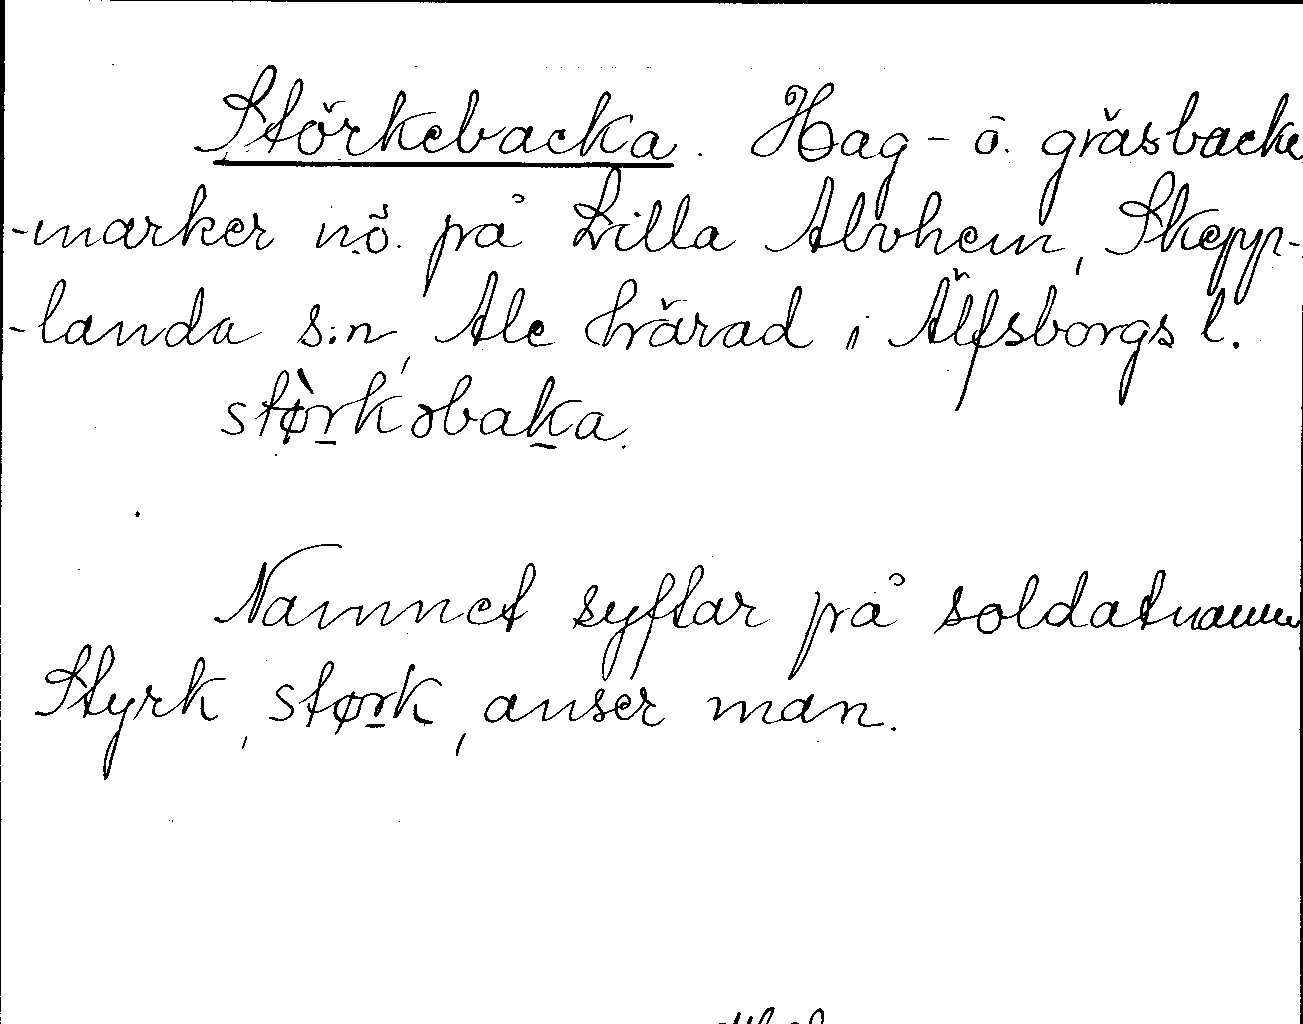 Störkebacka. Hag- ö. gräsbacke
-marker nö. på Lilla Alvhem, Skepp-
-landa s:n, Ale härad i Älfsborgs l.
stø̀rkəbaka.
Namnet syftar på soldatnamn
Styrk, størk, anser man.